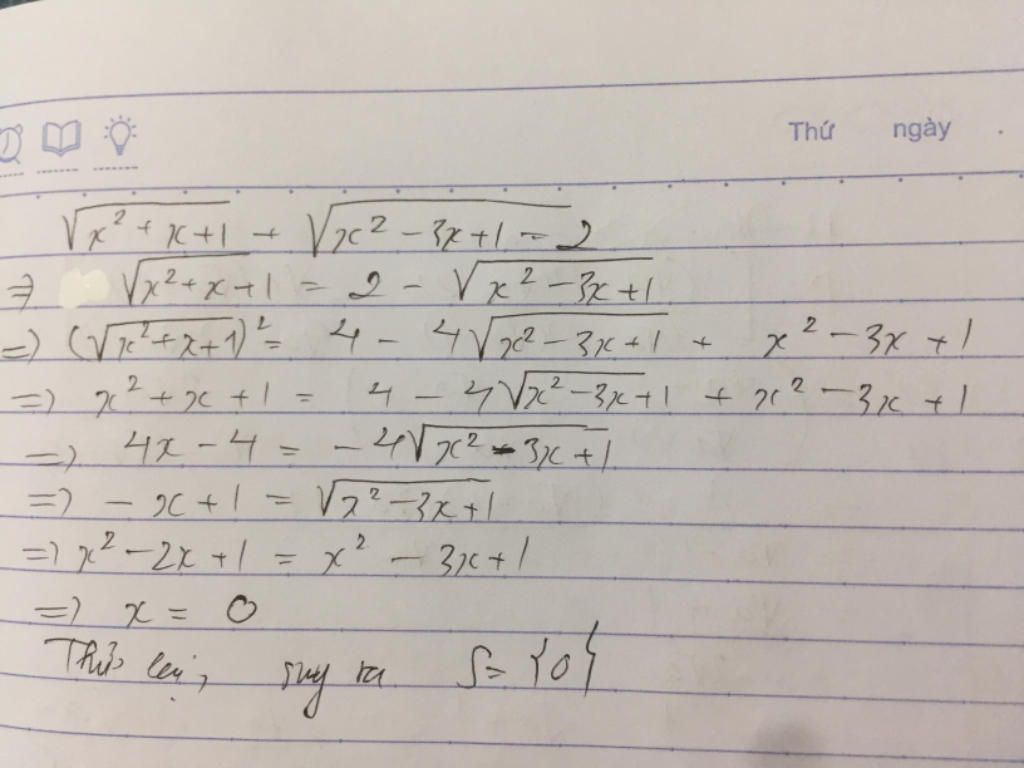 Thứ ngày
√(x² + x + 1) + √(x² - 3x + 1) = 2
⇒ √(x² + x + 1) = 2 - √(x² - 3x + 1)
⇒ (√(x² + x + 1))² = 4 - 4√(x² - 3x + 1) + x² - 3x + 1
⇒ x² + x + 1 = 4 - 4√(x² - 3x + 1) + x² - 3x + 1
⇒ 4x - 4 = -4√(x² - 3x + 1)
⇒ -x + 1 = √(x² - 3x + 1)
⇒ x² - 2x + 1 = x² - 3x + 1
⇒ x = 0
Thử lại, suy ra S = {0}